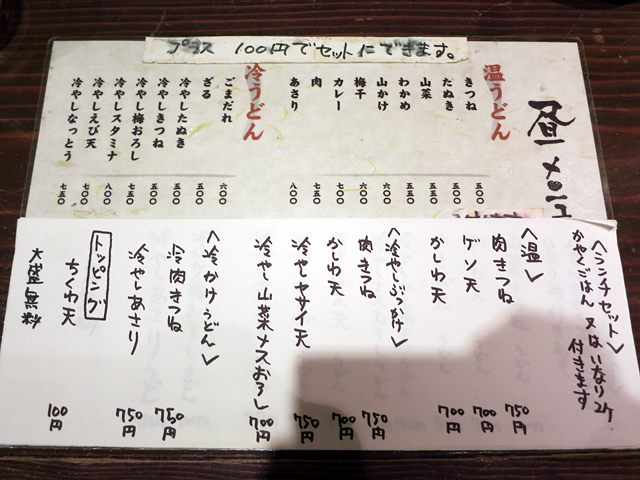 プラス 100円でセットにできます。
昼メニュ
温うどん
きつね 五〇〇
たぬき 五五〇
山菜 五五〇
わかめ 五五〇
山かけ 六〇〇
梅干 六〇〇
カレー 七五〇
肉 七五〇
あさり 八〇〇
冷うどん
ごまだれ 六〇〇
ざる 五〇〇
冷やしたぬき 五〇〇
冷やしきつね 五〇〇
冷やし梅おろし
冷やしスタミナ
冷やしえび天 八〇〇
冷やしなっとう 七五〇
〈ランチセット〉
かやくごはん 又は いなり2ケ
付きます
〈温〉
肉きつね 750円
ゲソ天 700円
かしわ天 700円
〈冷やしぶっかけ〉
肉きつね 750円
かしわ天 700円
冷やしヤサイ天 750円
冷やし山菜メスおろし 700円
〈冷かけうどん〉
冷肉きつね 750円
冷やしあさり 750円
トッピング
ちくわ天 100円
大盛無料